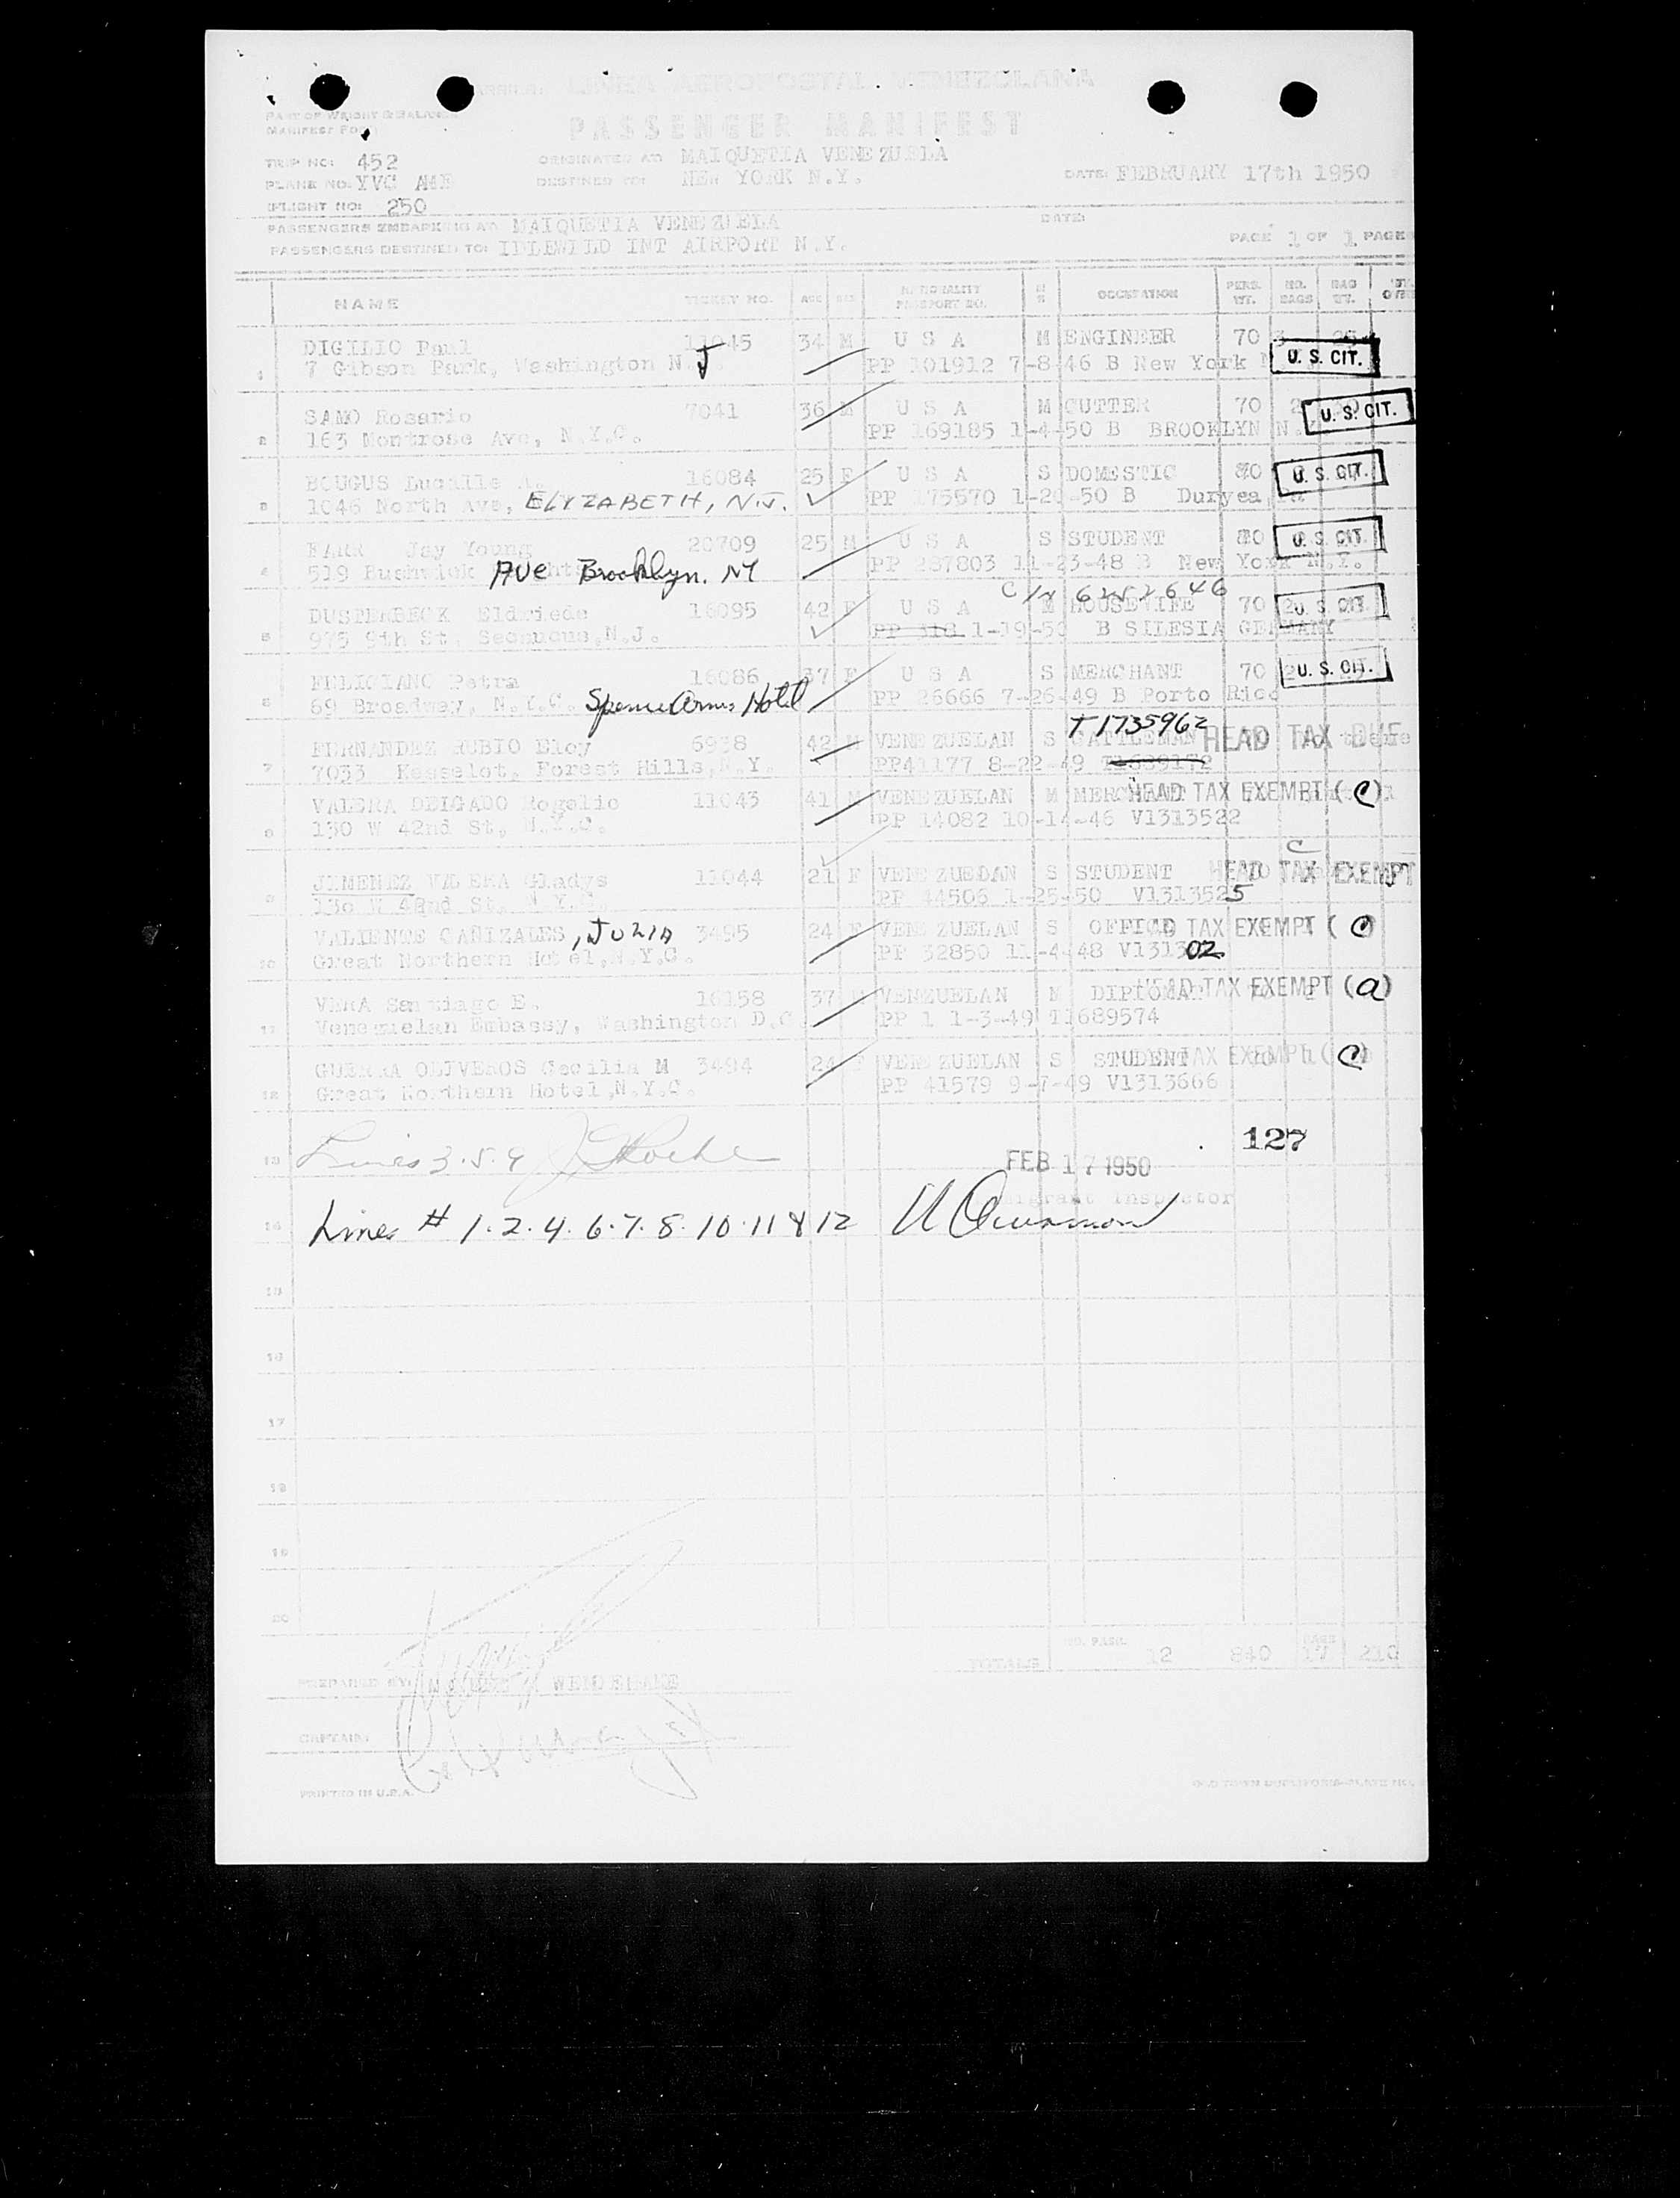 LINEA AEROPOSTAL VENEZOLANA
PART OF WEIGHT & BALANCE
MANIFEST FORM
PASSENGER MANIFEST
TRIP NO: 452 ORIGINATED AT: MAIQUETIA VENEZUELA
PLANE NO: YVC AME DESTINED TO: NEW YORK N.Y. DATE: FEBRUARY 17th 1950
FLIGHT NO: 250
PASSENGERS EMBARKING AT: MAIQUETIA VENEZUELA DATE:
PASSENGERS DESTINED TO: IDLEWILD INT AIRPORT N.Y. PAGE 1 OF 1 PAGES
NAME TICKET NO. AGE SEX NATIONALITY PASSPORT NO. OCCUPATION PERS. WT. NO. BAGS BAG WT.
DIGILIO Paul 11045 34 M U S A M ENGINEER 70 3
1 7 Gibson Park, Washington N J PP 101912 7-8-46 B New York U. S. CIT.
SAMO Rosario 7041 36 M U S A M CUTTER 70 2
2 163 Montrose Ave, N.Y.C. PP 169185 1-4-50 B BROOKLYN N. U. S. CIT.
BOUGUS Lucille 16084 25 F U S A S DOMESTIC U. S. CIT.
3 1046 North Ave, ELYZABETH, N.J. PP 175570 1-20-50 B Duryea
FARR Jay Young 20709 25 M U S A S STUDENT U. S. CIT.
4 519 Bushwick AVE Brooklyn. NY PP 287803 11-23-48 B New York N.Y.
DUSTERBECK Eldriede 16095 42 F U S A M HOUSEWIFE 70 2 U. S. CIT.
5 975 9th St, Secaucus, N.J. PP 318 1-19-50 B SILESIA GERMANY
FELICIANO Petra 16086 37 F U S A S MERCHANT 70 U. S. CIT.
6 69 Broadway, N.Y.C. Hotel PP 26666 7-26-49 B Porto Rico
T1735962
FERNANDEZ RUBIO Eloy 6938 42 M VENEZUELAN S CATTLEMAN HEAD TAX DUE
7 7033 Kesselot, Forest Hills, N.Y. PP41177 8-22-49
VALERA DELGADO Rogelio 11043 41 M VENEZUELAN M MERCHANT HEAD TAX EXEMPT (C)
8 130 W 42nd St, N.Y.C. PP 14082 10-14-46 V1313522
C
JIMENEZ VALERA Gladys 11044 21 F VENEZUELAN S STUDENT HEAD TAX EXEMPT
9 130 W 42nd St, N.Y.C. PP 44506 1-25-50 V1313525
VALIENTE CAÑIZALES, JULIA 3495 24 F VENEZUELAN S OFFICE HEAD TAX EXEMPT (C)
10 Great Northern Hotel, N.Y.C. PP 32850 11-4-48 V131302
VERA Santiago E. 16158 37 M VENEZUELAN M DIPLOMAT HEAD TAX EXEMPT (a)
11 Venezuelan Embassy, Washington D.C. PP 1 1-3-49 T1689574
GUERRA OLIVEROS Cecilia M 3494 24 F VENEZUELAN S STUDENT TAX EXEMPT (C)
12 Great Northern Hotel, N.Y.C. PP 41579 9-7-49 V1313666
127
13 Lines 3.5.9
FEB 17 1950
Immigrant Inspector
14 Lines # 1.2.4.6.7.8.10.11 & 12
15
16
17
18
19
20
TOTALS NO. PASS. 12 840 BAGS 17 210
PREPARED BY:
CAPTAIN:
PRINTED IN U.S.A.